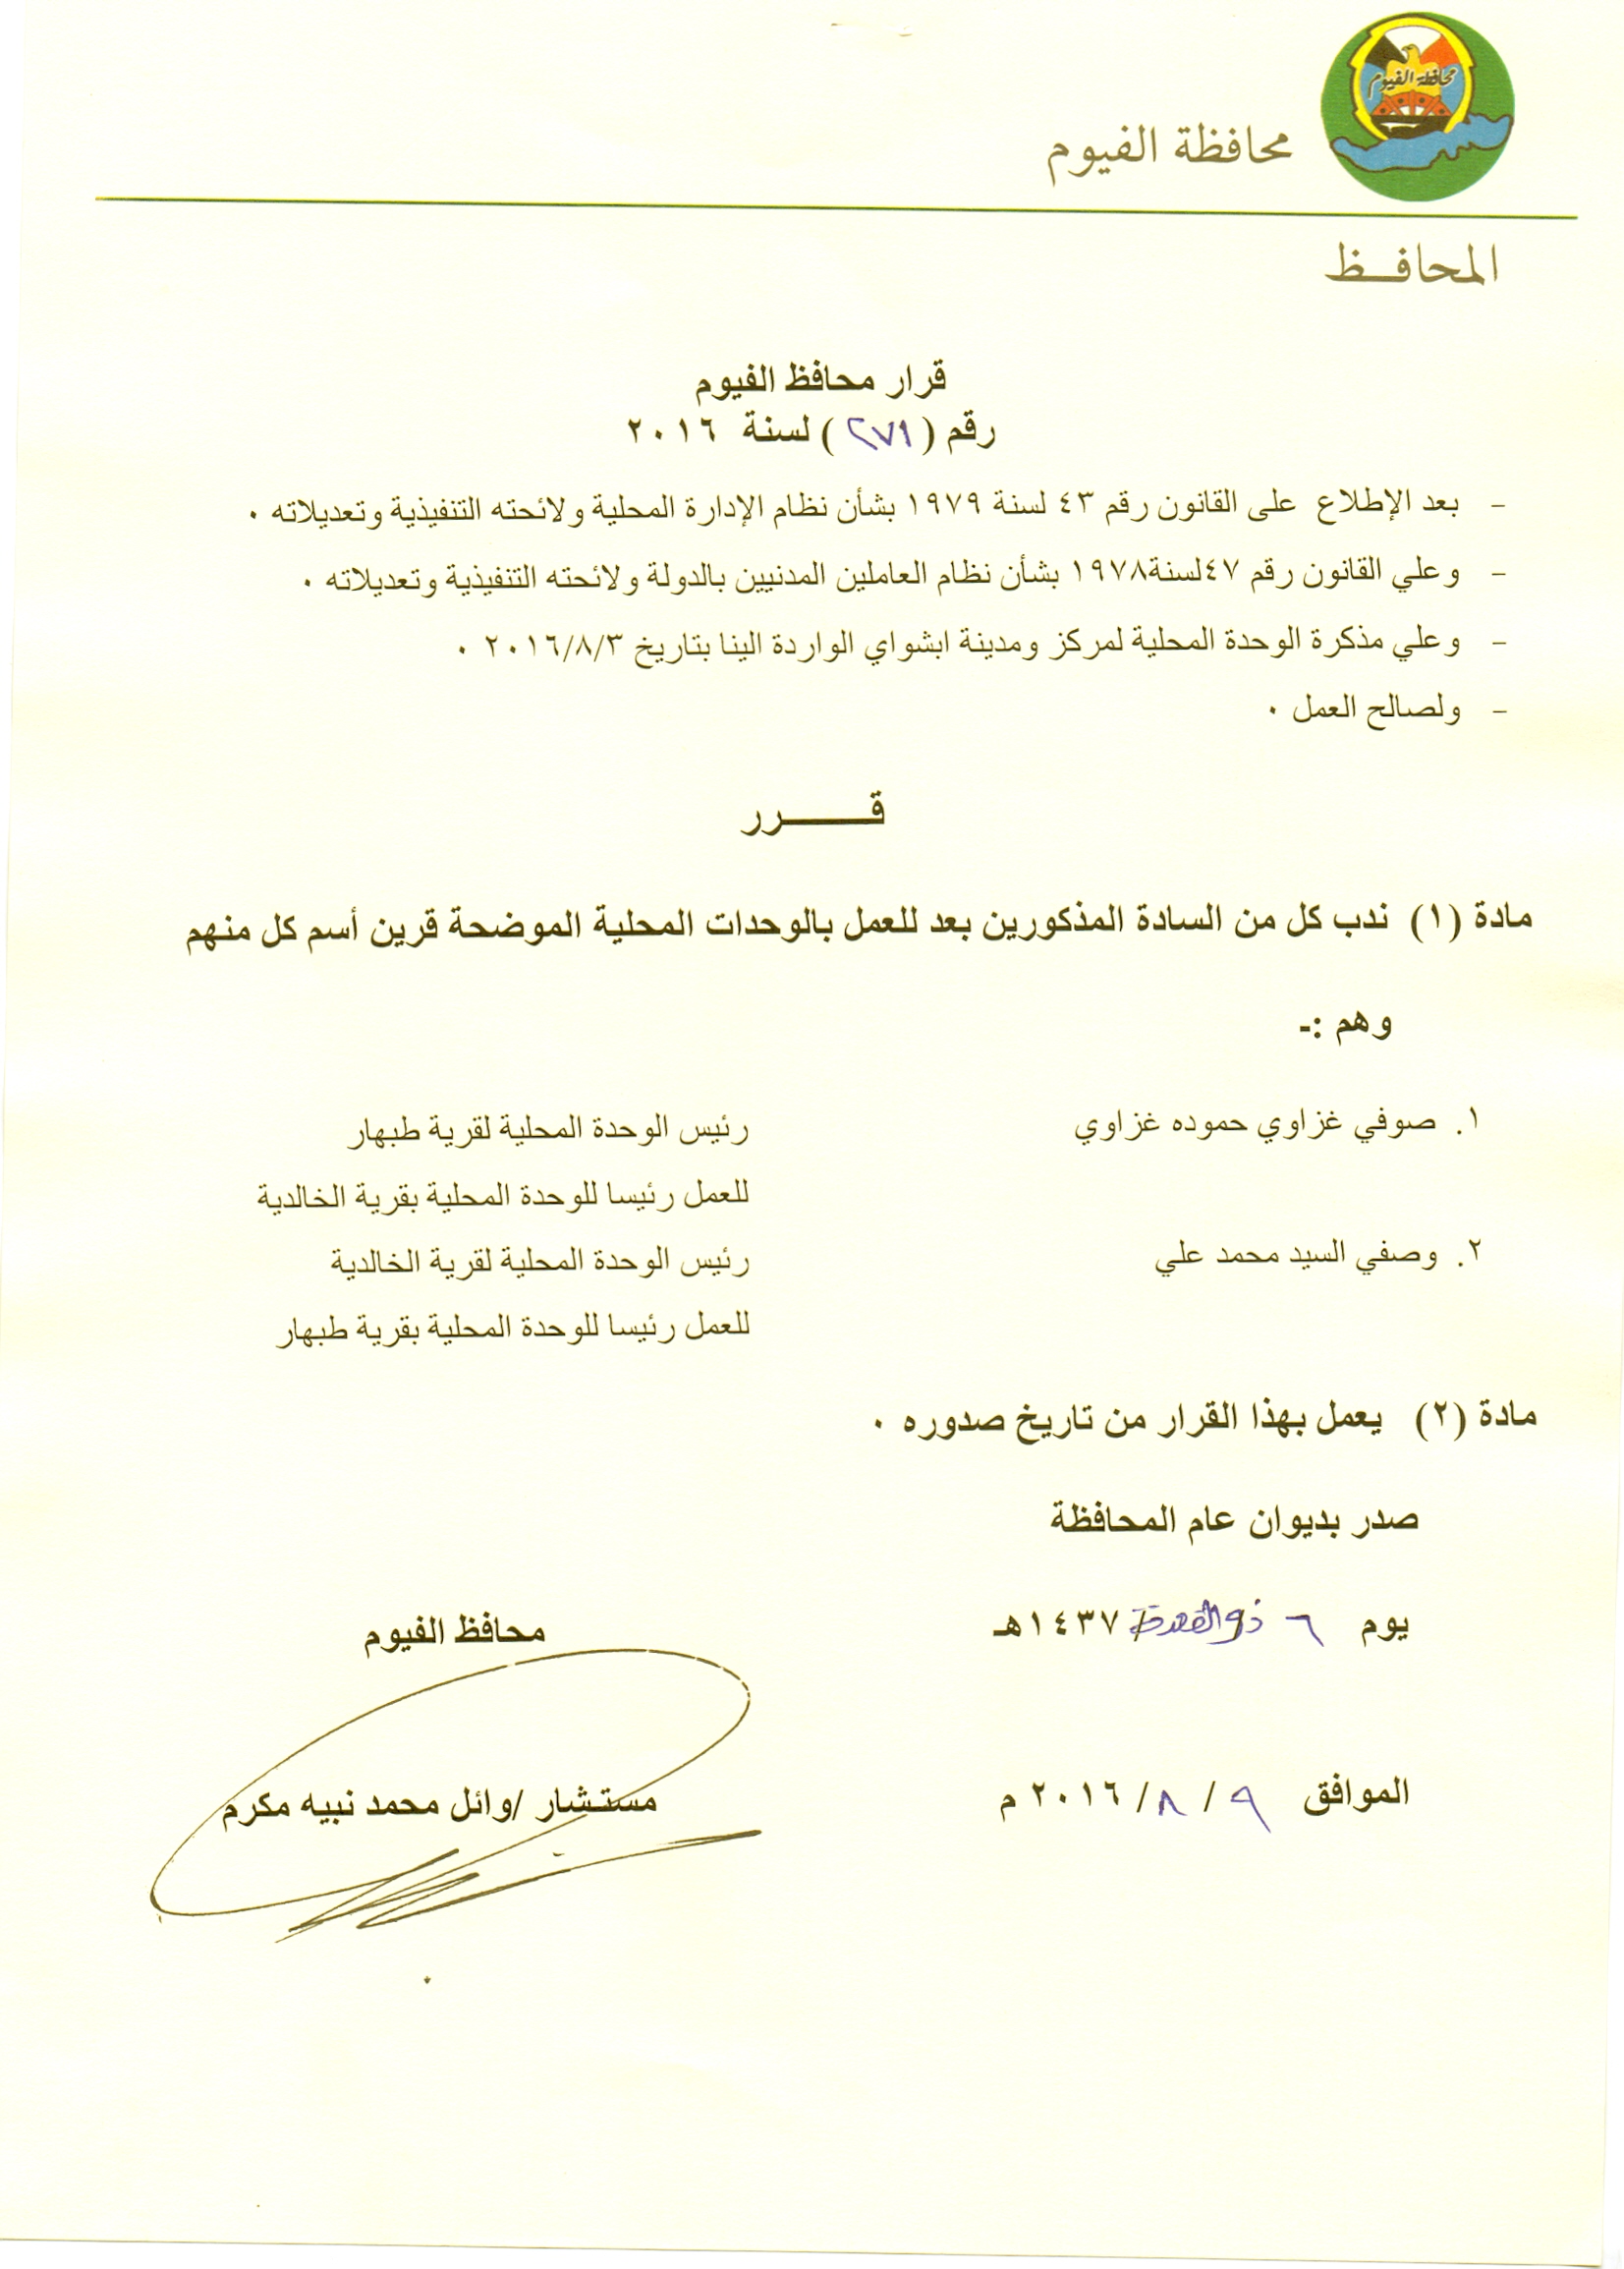 محافظة الفيوم
محافظة الفيوم
المحافــظ
قرار محافظ الفيوم
رقم ( ٢٧١ ) لسنة ٢٠١٦
- بعد الإطلاع على القانون رقم ٤٣ لسنة ١٩٧٩ بشأن نظام الإدارة المحلية ولائحته التنفيذية وتعديلاته ٠
- وعلي القانون رقم ٤٧لسنة١٩٧٨ بشأن نظام العاملين المدنيين بالدولة ولائحته التنفيذية وتعديلاته ٠
- وعلي مذكرة الوحدة المحلية لمركز ومدينة ابشواي الواردة الينا بتاريخ ٢٠١٦/٨/٣ ٠
- ولصالح العمل ٠
قـــــــرر
مادة (١) ندب كل من السادة المذكورين بعد للعمل بالوحدات المحلية الموضحة قرين أسم كل منهم
وهم :-
١. صوفي غزاوي حموده غزاوي رئيس الوحدة المحلية لقرية طبهار
للعمل رئيسا للوحدة المحلية بقرية الخالدية
٢. وصفي السيد محمد علي رئيس الوحدة المحلية لقرية الخالدية
للعمل رئيسا للوحدة المحلية بقرية طبهار
مادة (٢) يعمل بهذا القرار من تاريخ صدوره ٠
صدر بديوان عام المحافظة
يوم ٦ ذو القعدة / ١٤٣٧هـ
محافظ الفيوم
الموافق ٩ / ٨ / ٢٠١٦ م
مستشار /وائل محمد نبيه مكرم